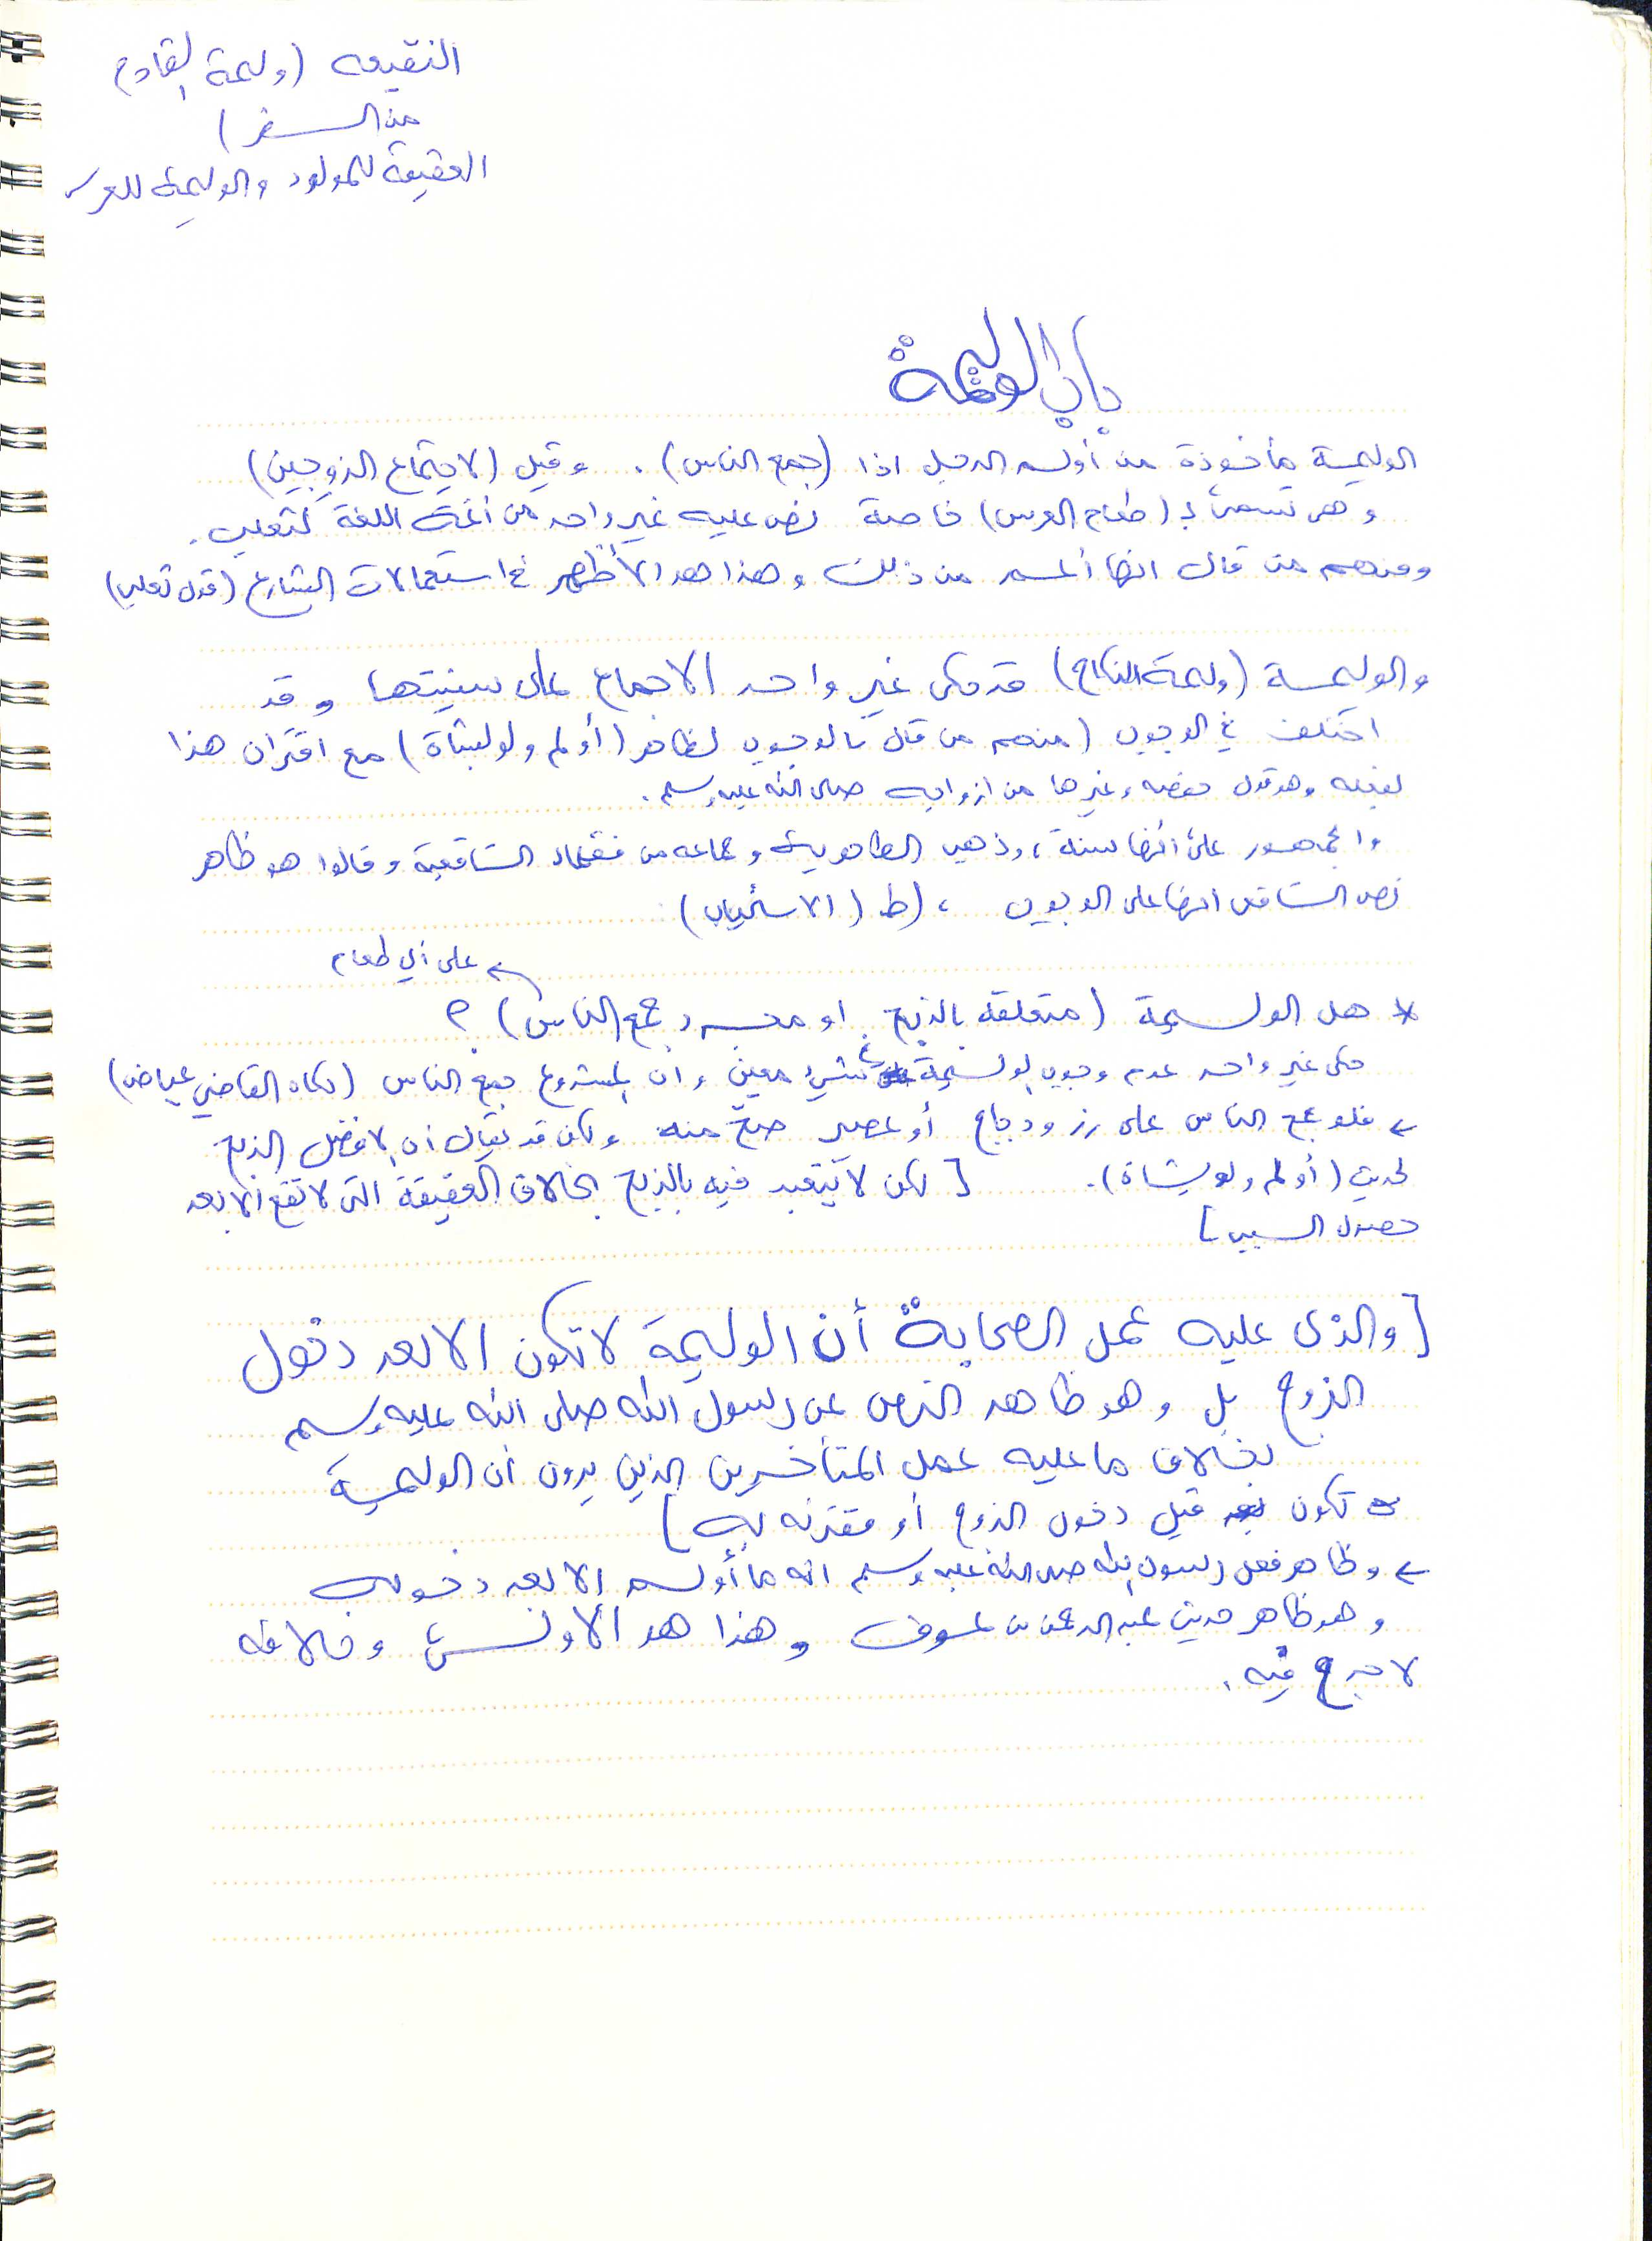 النقيعه (وليمة القادم
من السفر)
العقيقة للمولود والوليمة للعرس
باب الوليمة
الوليمة مأخوذة من أولم الرجل اذا (جمع الناس). وقيل (لاجتماع الزوجين)
وهي تسمى بـ (طعام العرس) خاصة نص عليه غير واحد من أئمة اللغة كثعلب.
ومنهم من قال انها أعم من ذلك وهذا هو الأظهر في استعمالات الشارع (قول ثعلب)
والوليمة (وليمة النكاح) قد حكى غير واحد الاجماع على سنيتها وقد
اختلف في الوجوب (منهم من قال بالوجوب لظاهر (أولم ولو بشاة) مع اقتران هذا
بفعله وهو قول وغيرها من ازواجه صلى الله عليه وسلم.
والجمهور على أنها سنة، وذهب الظاهرية وجماعه من فقهاء الشافعية وقالوا هو ظاهر
نص الشافعي انها على الوجوب ، (ط (الاستحباب)
على أي طعام
* هل الوليمة (متعلقه بالذبح او مجرد جمع الناس) ؟
حكى غير واحد عدم وجوب الوليمة بشيء معين وان المشروع جمع الناس (حكاه القاضي عياض)
← فلو جمع الناس على رز ودجاج أو عصير صح منه ولكن قد يقال ان الافضل الذبح
لحديث (أولم ولو بشاة). [ لكن لا يتعبد فيه بالذبح بخلاف العقيقة التي لا تقع الا بعد
حصول السبب ]
[ والذي عليه عمل الصحابة أن الوليمة لا تكون الا بعد دخول
الزوج بل وهو ظاهر النص عن رسول الله صلى الله عليه وسلم
بخلاف ما عليه عمل المتأخرين الذين يرون أن الوليمة
تكون قبل دخول الزوج أو مقترنه به ]
← وظاهر فعل رسول الله صلى الله عليه وسلم انه ما أولم الا بعد دخوله
وهو ظاهر حديث عبد الرحمن بن عوف وهذا هو الأولى وخلافه
لا حرج فيه.